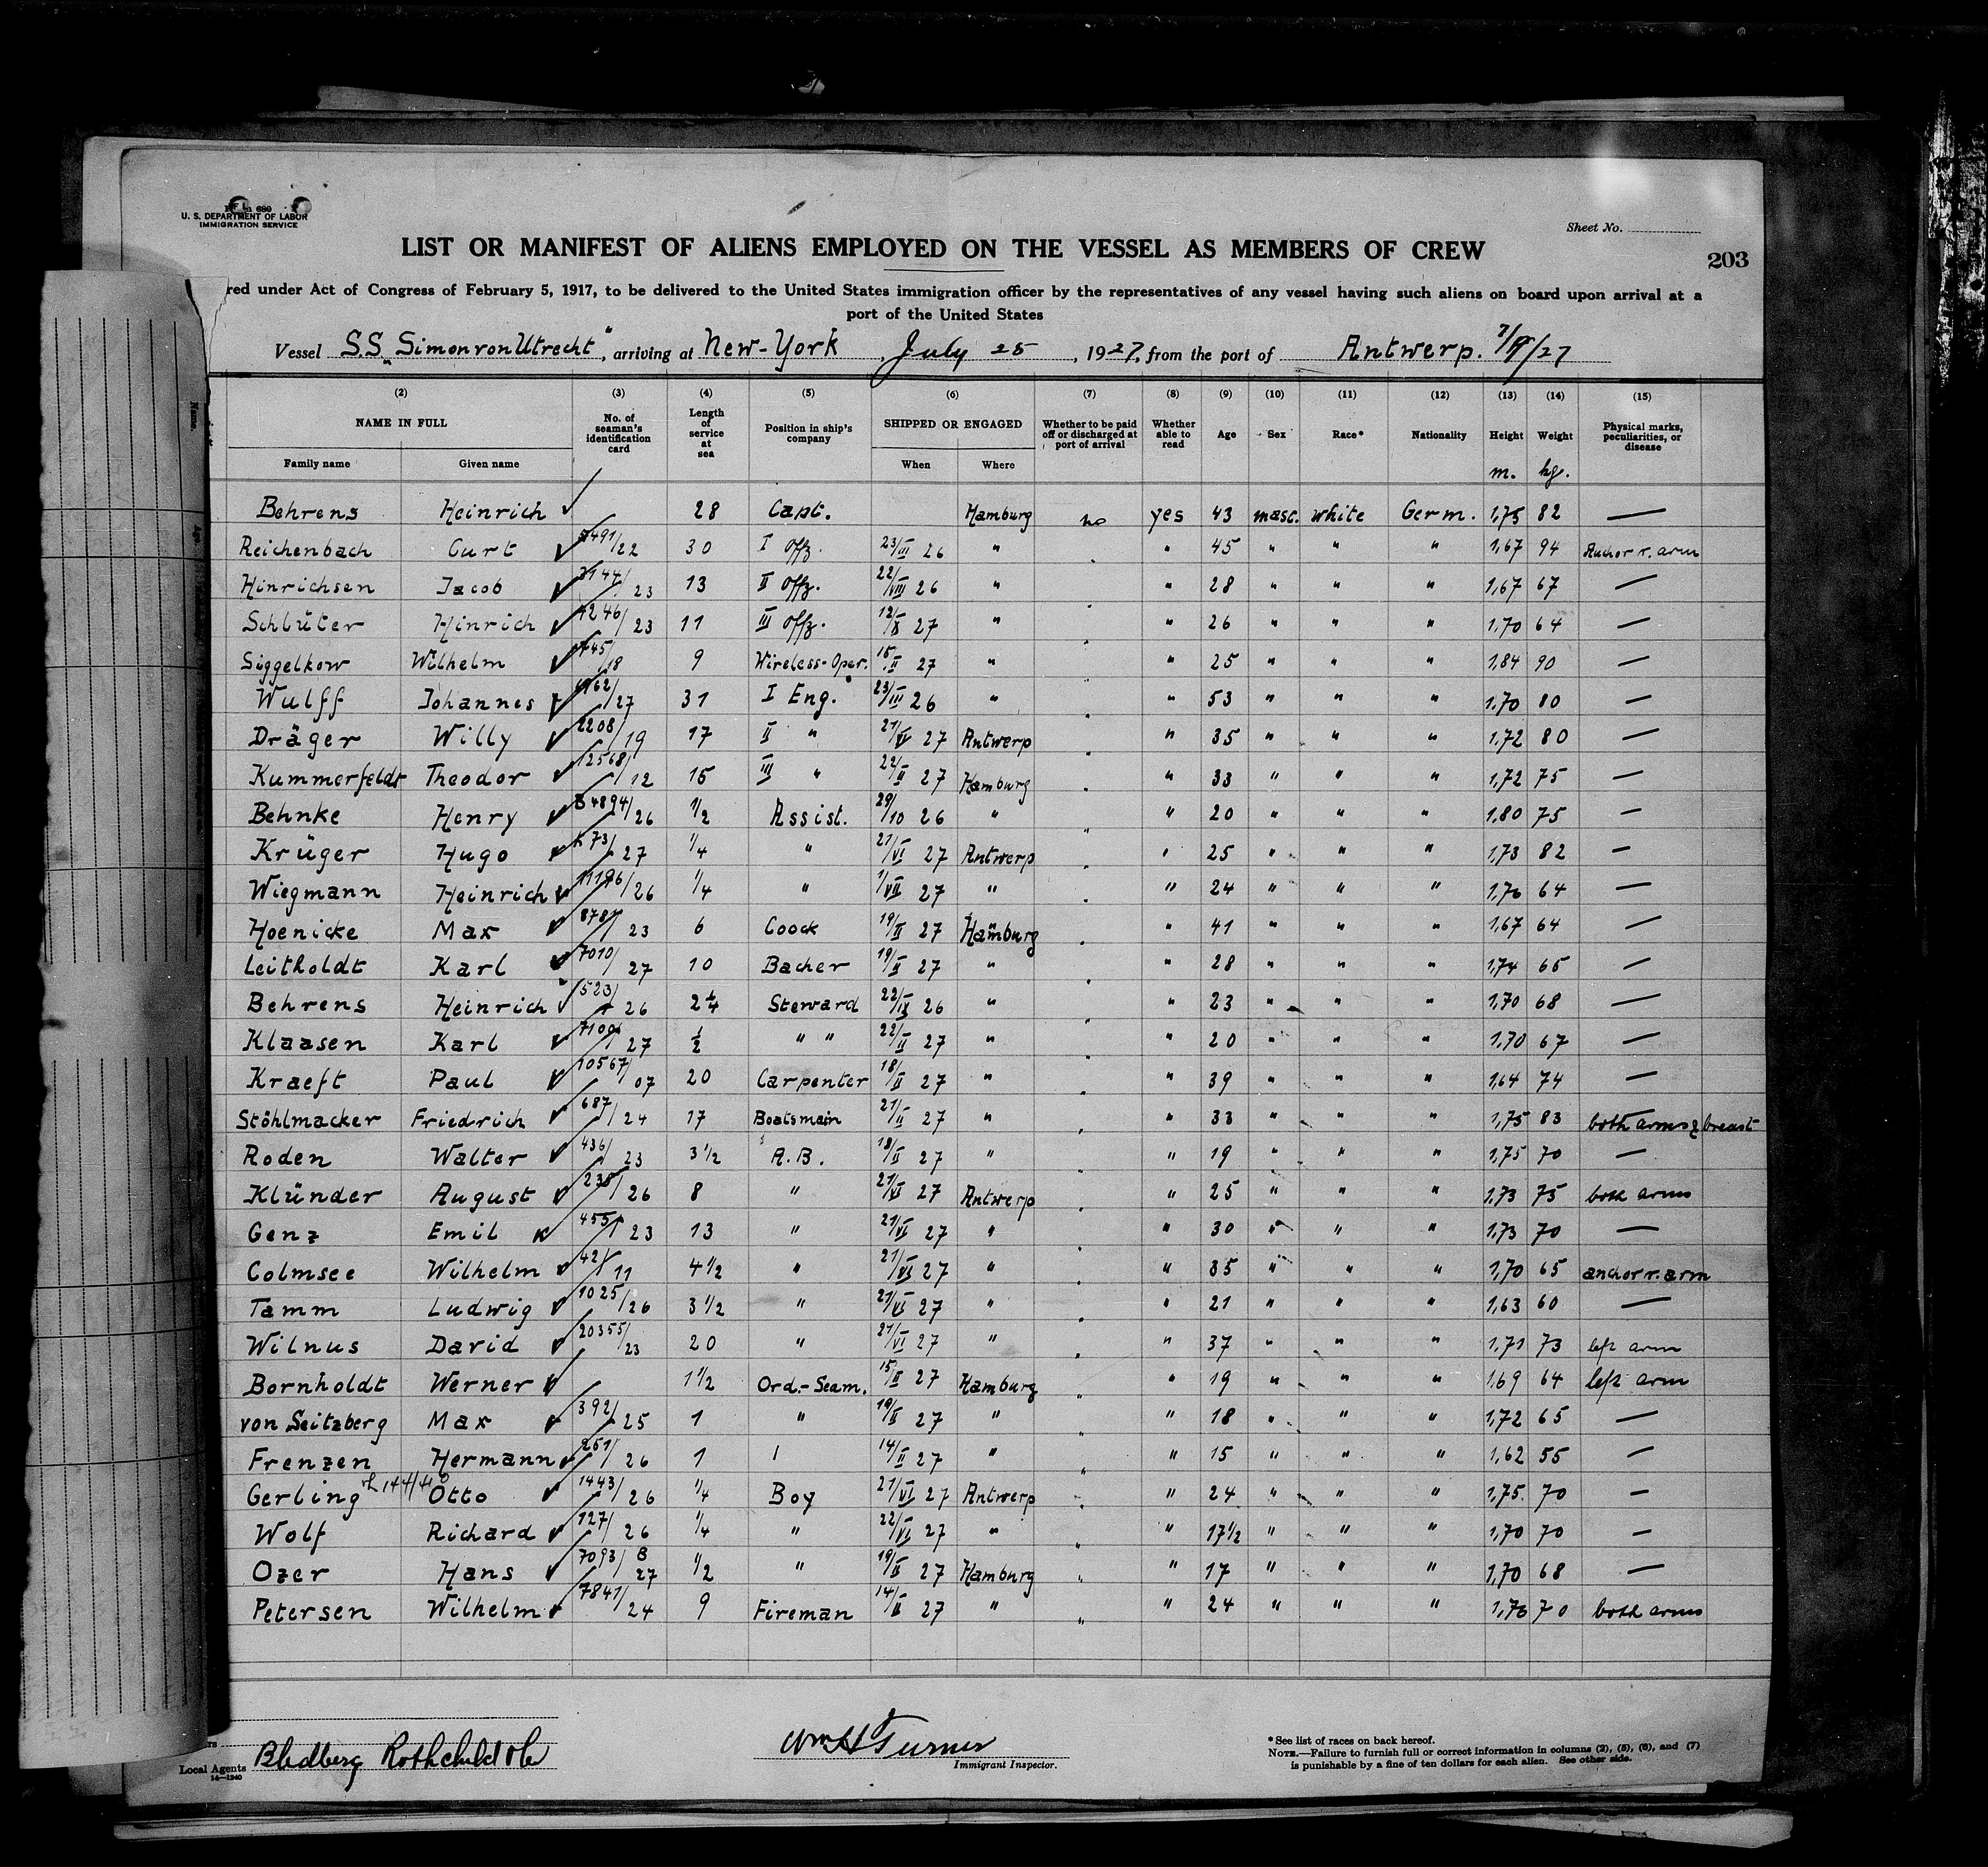 U. S. DEPARTMENT OF LABOR
IMMIGRATION SERVICE
Sheet No.
LIST OR MANIFEST OF ALIENS EMPLOYED ON THE VESSEL AS MEMBERS OF CREW
203
red under Act of Congress of February 5, 1917, to be delivered to the United States immigration officer by the representatives of any vessel having such aliens on board upon arrival at a
port of the United States
Vessel S.S. "Simon von Utrecht", arriving at New-York, July 25, 1927, from the port of Antwerp.
(2) (3) (4) (5) (6) (7) (8) (9) (10) (11) (12) (13) (14) (15)
NAME IN FULL No. of seaman's identification card Length of service at sea Position in ship's company SHIPPED OR ENGAGED Whether to be paid off or discharged at port of arrival Whether able to read Age Sex Race* Nationality Height Weight Physical marks, peculiarities, or disease
Family name Given name When Where m. kg.
Behrens Heinrich 28 Capt. Hamburg no yes 43 masc. white Germ. 1,75 82 —
Reichenbach Curt 30 I Offz. 23/III 26 " " 45 " " " 1,67 94 Anchor r. arm
Hinrichsen Jacob 3144/23 13 II Offz. 22/VIII 26 " " 28 " " " 1,67 67 —
Schlüter Hinrich 4246/23 11 III Offz. 27 " " 26 " " " 1,70 64 —
Siggelkow Wilhelm 9 Wireless-Oper. 15/II 27 " " 25 " " " 1,84 90 —
Wulff Johannes 27 31 I Eng. 23/III 26 " " 53 " " " 1,70 80 —
Dräger Willy 2208/19 17 II " 21/VI 27 Antwerp " 35 " " " 1,72 80 —
Kummerfeldt Theodor 12568/12 15 III " 22/II 27 Hamburg " 33 " " " 1,72 75 —
Behnke Henry B 4894/26 1/2 Assist. 29/10 26 " " 20 " " " 1,80 75 —
Krüger Hugo 27 1/4 " 21/VI 27 Antwerp " 25 " " " 1,73 82 —
Wiegmann Heinrich 11196/26 1/4 " 1/VII 27 " " 24 " " " 1,76 64 —
Hoenicke Max 23 6 Coock 19/II 27 Hamburg " 41 " " " 1,67 64 —
Leitholdt Karl 7010/27 10 Bacher 19/II 27 " " 28 " " " 1,74 65 —
Behrens Heinrich 523/26 2 1/4 Steward 22/IX 26 " " 23 " " " 1,70 68 —
Klaasen Karl 27 1/2 " " 22/II 27 " " 20 " " " 1,70 67 —
Kraeft Paul 10567/07 20 Carpenter 18/II 27 " " 39 " " " 1,64 74 —
Stöhlmacker Friedrich 687/24 17 Boatsmain 21/II 27 " " 33 " " " 1,75 83 both arms & breast
Roden Walter 436/23 3 1/2 A.B. 18/II 27 " " 19 " " " 1,75 70 —
Klünder August 26 8 " 21/VI 27 Antwerp " 25 " " " 1,73 75 both arms
Genz Emil 455/23 13 " 21/VI 27 " " 30 " " " 1,73 70 —
Colmsee Wilhelm 11 4 1/2 " 21/VI 27 " " 35 " " " 1,70 65 anchor r. arm
Tamm Ludwig 1025/26 3 1/2 " 21/VI 27 " " 21 " " " 1,63 60 —
Wilnus David 20355/23 20 " 21/VI 27 " " 37 " " " 1,71 73 left arm
Bornholdt Werner 1 1/2 Ord.-Seam. 15/II 27 Hamburg " 19 " " " 1,69 64 left arm
von Seitzberg Max 392/25 1 " 19/II 27 " " 18 " " " 1,72 65 —
Frenzen Hermann 26 1 14/II 27 " " 15 " " " 1,62 55 —
Gerling Otto 1443/26 1/4 Boy 21/VI 27 Antwerp " 24 " " " 1,75 70 —
Wolf Richard 127/26 1/4 " 22/VI 27 " " 17 1/2 " " " 1,70 70 —
Ozer Hans 7093/B 27 1/2 " 19/II 27 Hamburg " 17 " " " 1,70 68 —
Petersen Wilhelm 7841/24 9 Fireman 14/II 27 " " 24 " " " 1,76 70 both arms
Local Agents
14—1240
Wm H Turner
Immigrant Inspector.
* See list of races on back hereof.
NOTE.—Failure to furnish full or correct information in columns (2), (5), (6), and (7)
is punishable by a fine of ten dollars for each alien. See other side.